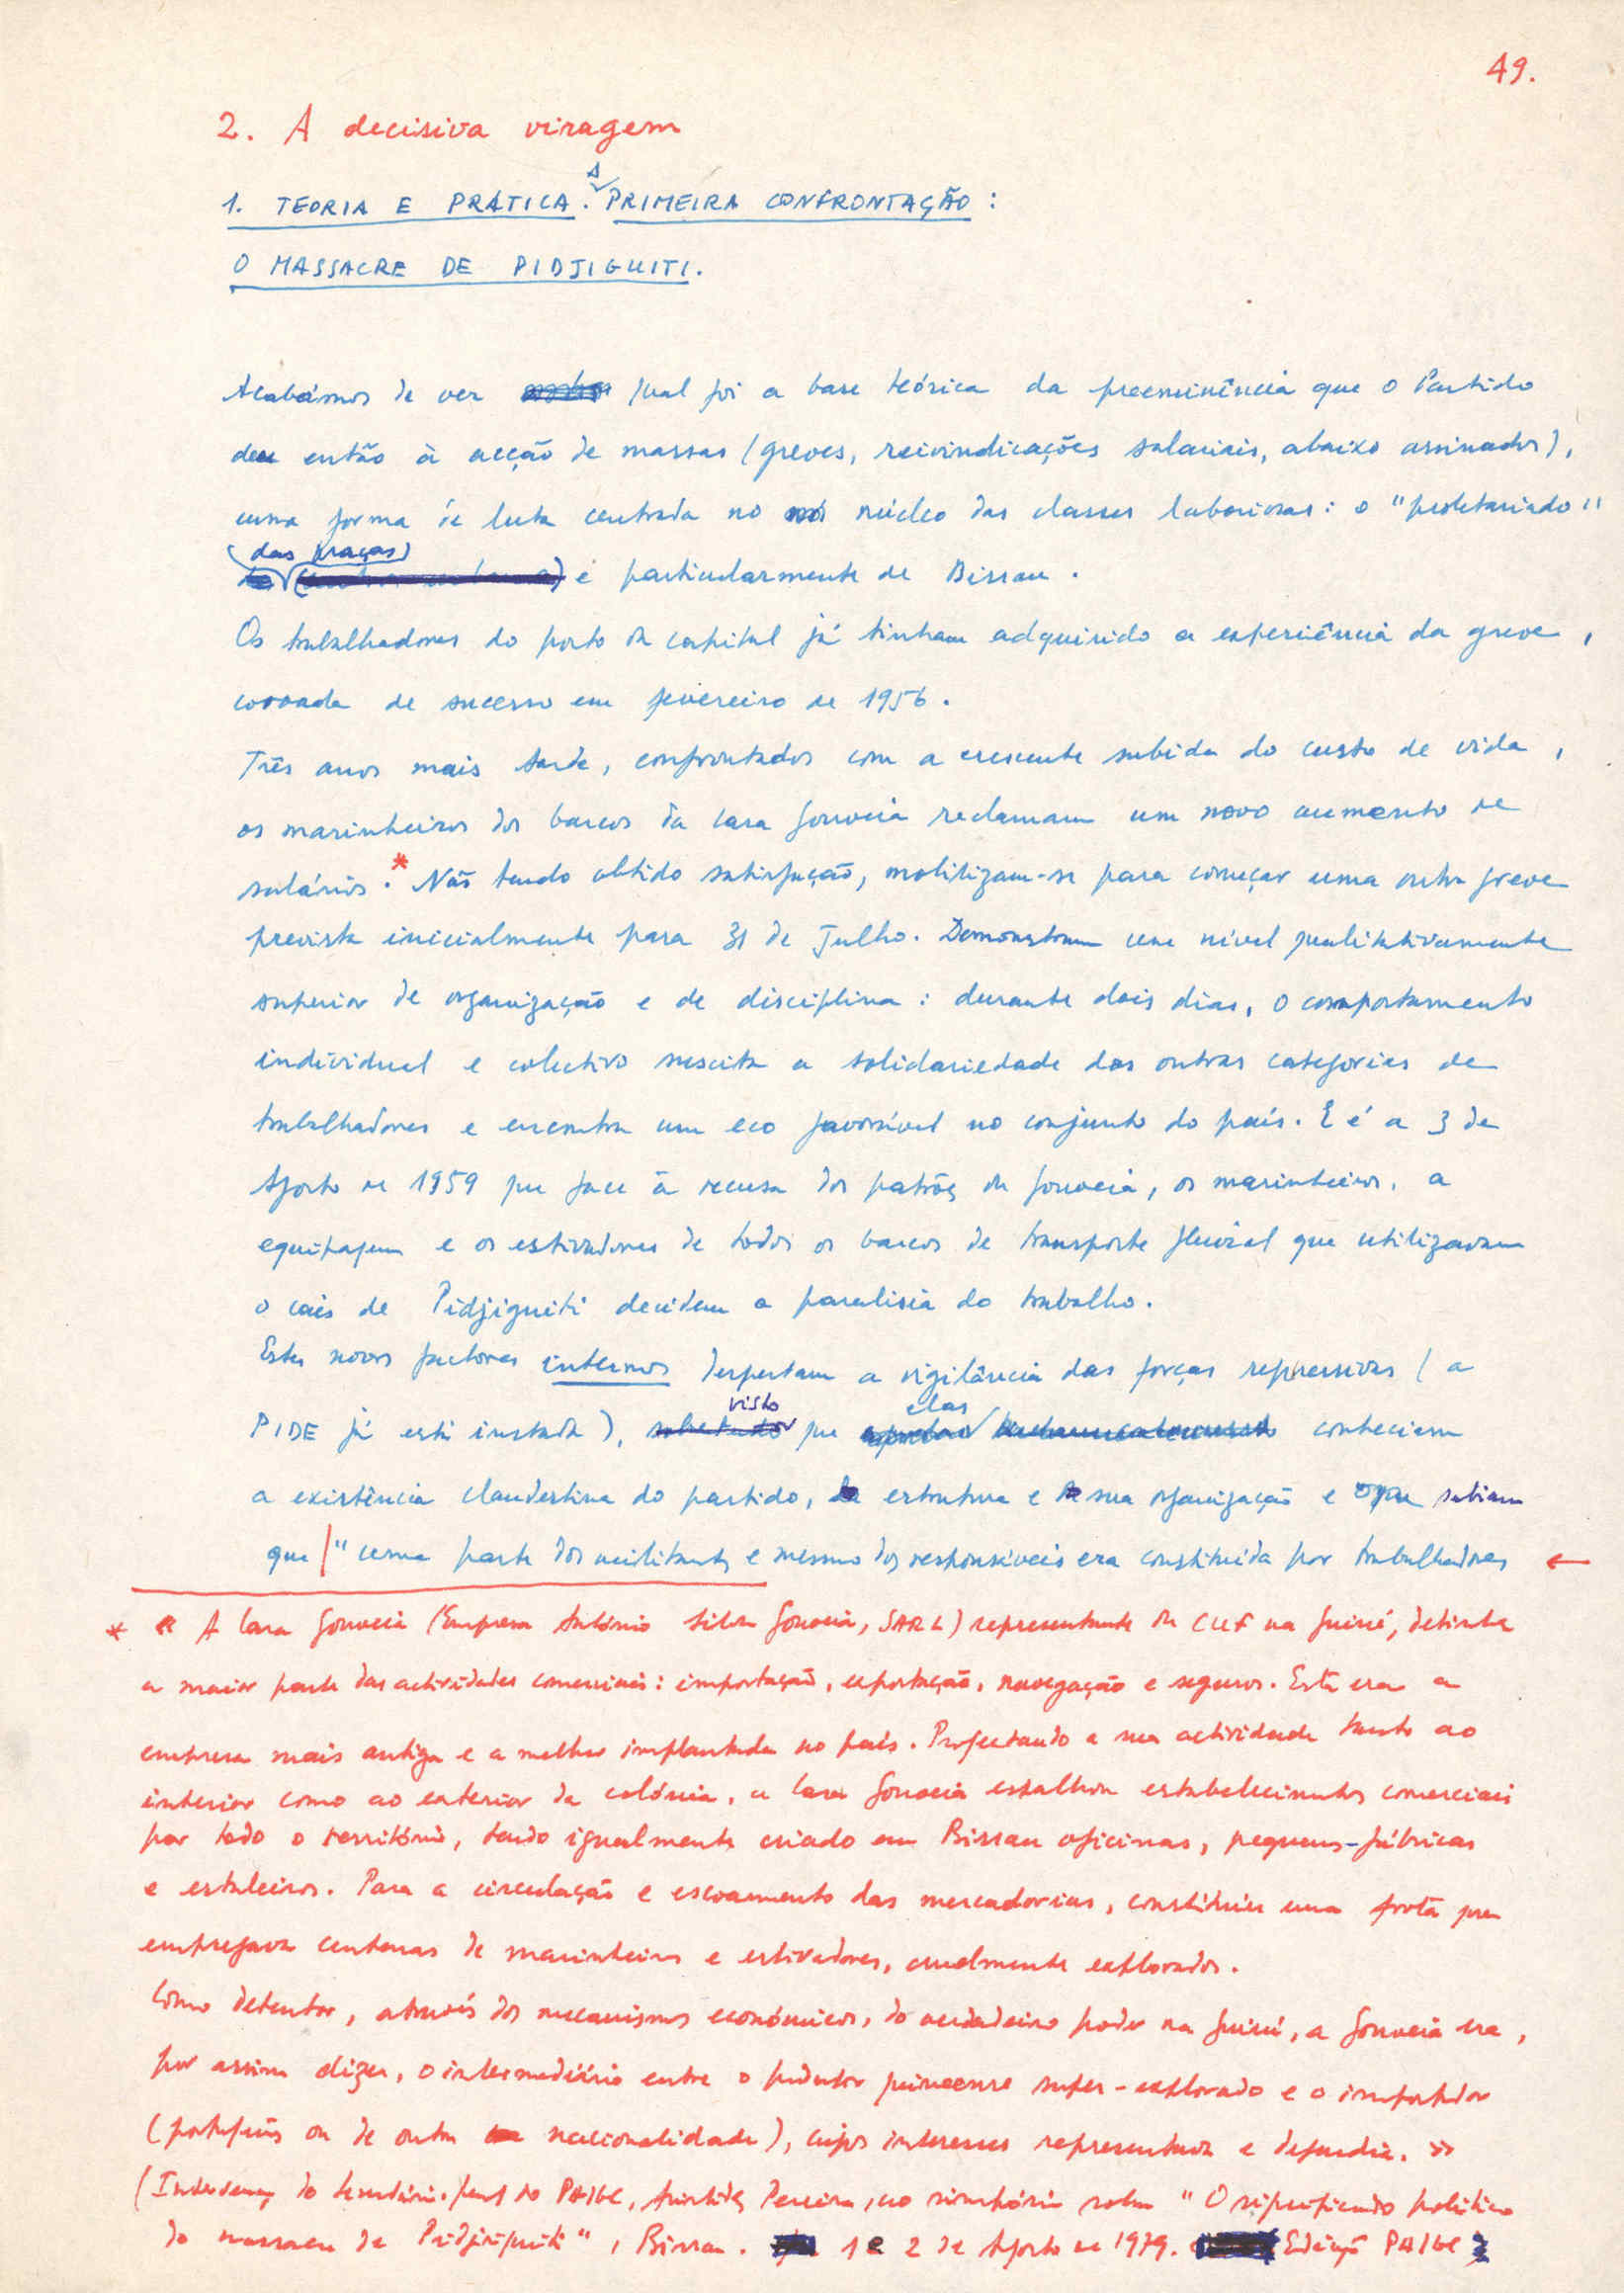 49.
2. A decisiva viragem
1. TEORIA E PRÁTICA. A PRIMEIRA CONFRONTAÇÃO :
O MASSACRE DE PIDJIGUITI.
Acabámos de ver qual foi a base teórica da preeminência que o Partido
deu então à acção de massas (greves, reivindicações salariais, abaixo assinados),
uma forma de luta centrada no núcleo das classes laboriosas: o "proletariado"
(das praças) e particularmente de Bissau.
Os trabalhadores do porto da capital já tinham adquirido a experiência da greve,
coroada de sucesso em fevereiro de 1956.
Três anos mais tarde, confrontados com a crescente subida do custo de vida,
os marinheiros dos barcos da Casa Gouveia reclamam um novo aumento de
salários.* Não tendo obtido satisfação, mobilizam-se para começar uma outra greve
prevista inicialmente para 31 de Julho. Demonstram um nível qualitativamente
superior de organização e de disciplina: durante dois dias, o comportamento
individual e colectivo suscita a solidariedade das outras categorias de
trabalhadores e encontra um eco favorável no conjunto do país. E é a 3 de
Agosto de 1959 que face à recusa dos patrões da Gouveia, os marinheiros, a
equipagem e os estivadores de todos os barcos de transporte fluvial que utilizavam
o cais de Pidjiguiti decidem a paralisia do trabalho.
Estes novos factores internos despertam a vigilância das forças repressivas (a
PIDE já está instada), visto que elas conheciam
a existência clandestina do partido, a estrutura e a sua organização e sabiam
que "uma parte dos militantes e mesmo dos responsáveis era constituída por trabalhadores ←
* « A Casa Gouveia (Empresa António Silva Gouveia, SARL) representante da CUF na Guiné, detinha
a maior parte das actividades comerciais: importação, exportação, navegação e seguros. Esta era a
empresa mais antiga e a melhor implantada no país. Projectando a sua actividade tanto ao
interior como ao exterior da colónia, a Casa Gouveia espalhou estabelecimentos comerciais
por todo o território, tendo igualmente criado em Bissau oficinas, pequenas-fábricas
e estaleiros. Para a circulação e escoamento das mercadorias, constituiu uma frota que
empregava centenas de marinheiros e estivadores, cruelmente explorados.
Como detentor, através dos mecanismos económicos, do verdadeiro poder na Guiné, a Gouveia era,
por assim dizer, o intermediário entre o produtor guineense super-explorado e o importador
(português ou de outra nacionalidade), cujos interesses representava e defendia. »
(Intervenção do Secretário-geral do PAIGC, Aristides Pereira, no simpósio sobre "O significado político
do massacre de Pidjiguiti", Bissau. 1 e 2 de Agosto de 1979. Edição PAIGC